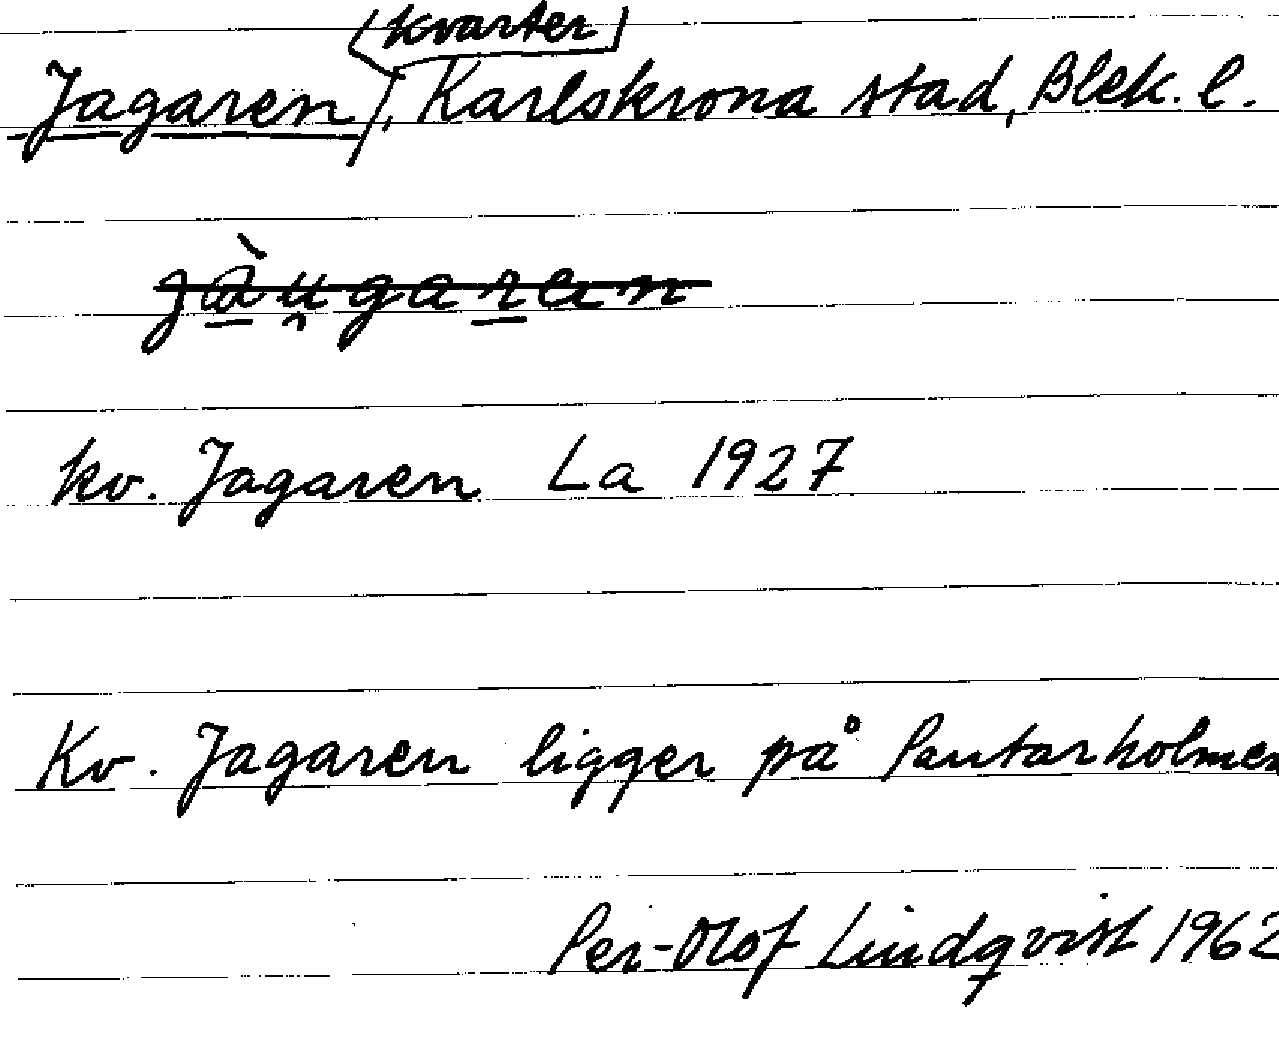 Jagaren (kvarter), Karlskrona stad, Blek. l.
kv. Jagaren La 1927
Kv. Jagaren ligger på Pantarholmen
Per-Olof Lindqvist 1962